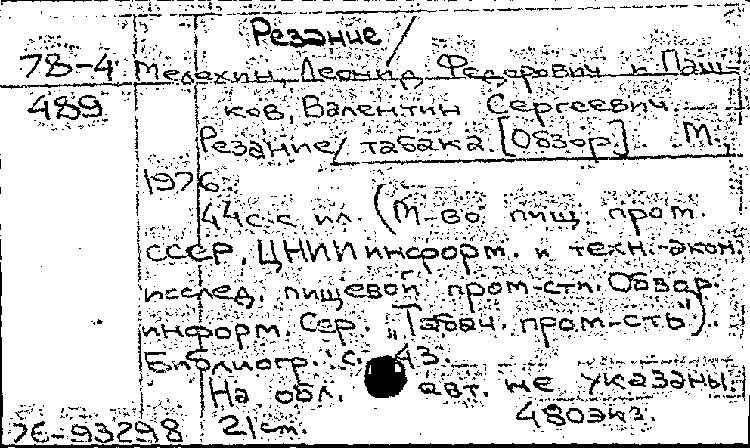 Резание /
78-4 Мелехин, Леонид Федорович и Паш-
489 ков, Валентин Сергеевич.
Резание/ табака. [Обзор]. М.,
1976.
44 с. с ил. (М-во пищ. пром.
СССР. ЦНИИ информ. и техн.-экон.
исслед. пищевой пром-сти. Обзор.
информ. Сер. "Табач. пром-сть").
Библиогр.: с. 43.
На обл. авт. не указаны.
480 экз.
76-93298 21 ст.